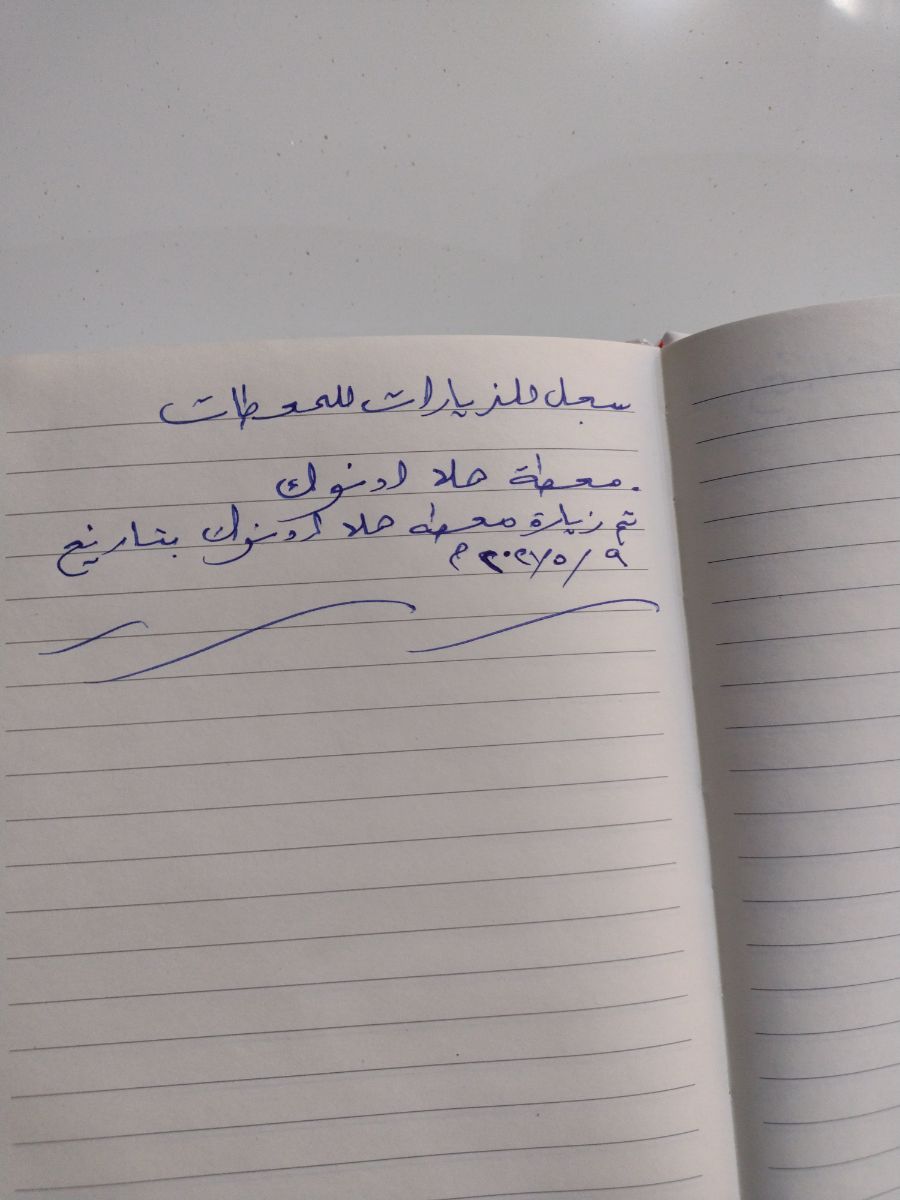 سجل للزيارات للمحطات
. محطة حلا ادنوك
تم زيارة محطه حلا أدنوك بتاريخ
٩/٥/ م